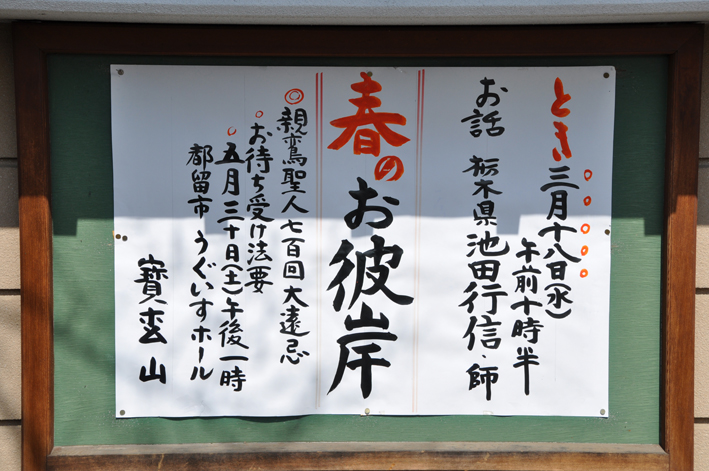 とき 三月十八日(水)
午前十時半
お話 栃木県 池田行信・師
春のお彼岸
◎親鸞聖人七百回大遠忌
お待ち受け法要
五月三十日(土)午後一時
都留市 うぐいすホール
寶雲山